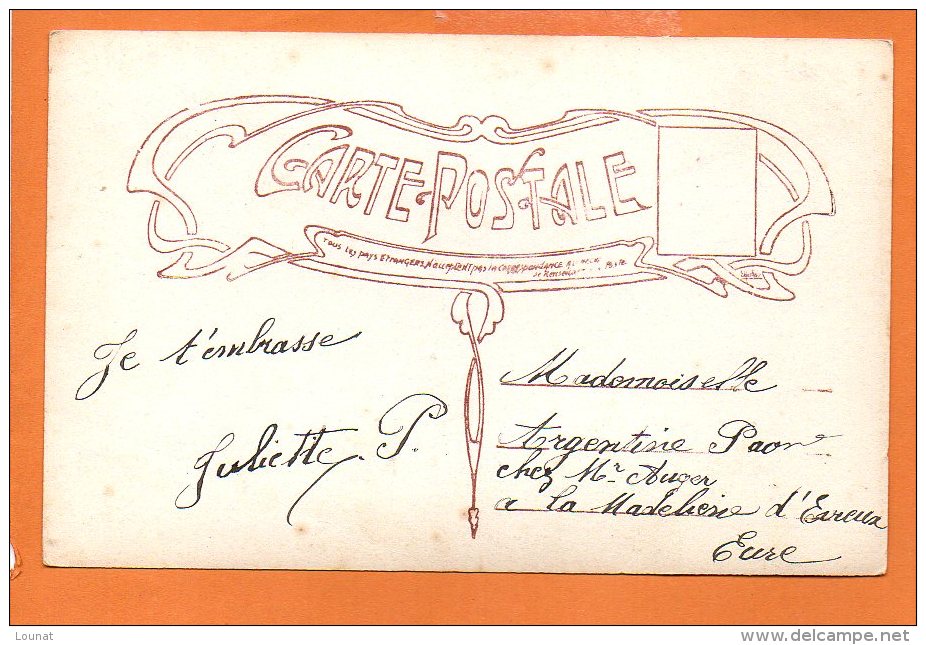 CARTE POSTALE
TOUS LES PAYS ETRANGERS N'acceptent pas la CORRESPONDANCE AU
Je t'embrasse
Juliette P.
Mademoiselle
Argentine Paon
chez Mr Auger
a la Madeleine d'Evreux
Eure
Lounat
www.delcampe.net